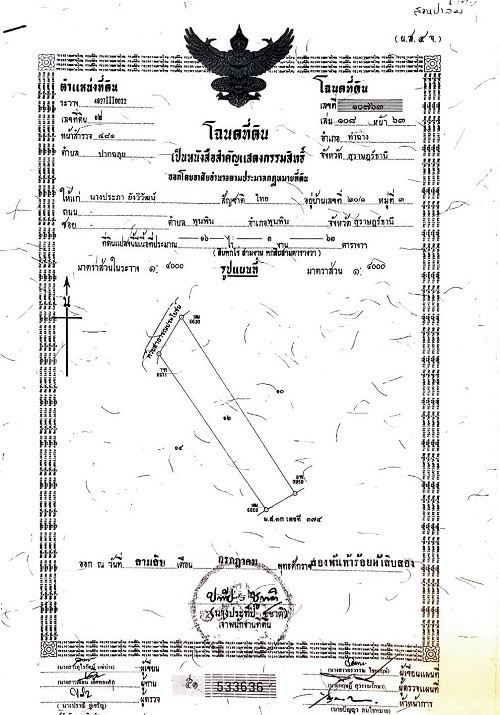 สวนปาล์ม
(น.ส.๔ จ.)
ตำแหน่งที่ดิน
ระวาง 4827III0022
เลขที่ดิน ๑๒
หน้าสำรวจ ๕๘๑
ตำบล ปากฉลุย
โฉนดที่ดิน
เลขที่ ๑๐๗๖๓
เล่ม ๑๐๘ หน้า ๖๓
อำเภอ ท่าฉาง
จังหวัด สุราษฎร์ธานี
โฉนดที่ดิน
เป็นหนังสือสำคัญแสดงกรรมสิทธิ์
ออกโดยอาศัยอำนาจตามประมวลกฎหมายที่ดิน
ให้แก่ นางประภา ยังวิวัฒน์ สัญชาติ ไทย อยู่บ้านเลขที่ ๒๐/๑ หมู่ที่ ๓
ถนน
ซอย ตำบล พุนพิน อำเภอพุนพิน จังหวัด สุราษฎร์ธานี
ที่ดินแปลงนี้มีเนื้อที่ประมาณ ๑๖ ไร่ ๓ งาน ๖๑ ตารางวา
(สิบหกไร่ สามงาน หกสิบตารางวา)
มาตราส่วนในระวาง ๑: ๔๐๐๐ รูปแผนที่ มาตราส่วน ๑: ๔๐๐๐
น
๑๐
๑๒
๑๔
น.ส.๓ก เลขที่ ๓๗๔
ออก ณ วันที่ สามสิบ เดือน กรกฎาคม พุทธศักราช สองพันห้าร้อยห้าสิบสอง
เจ้าพนักงานที่ดิน
ผู้เขียน
ผู้ทาน
ผู้ตรวจ
533636
ผู้เขียนแผนที่
ผู้ตรวจแผนที่
หัวหน้าการ